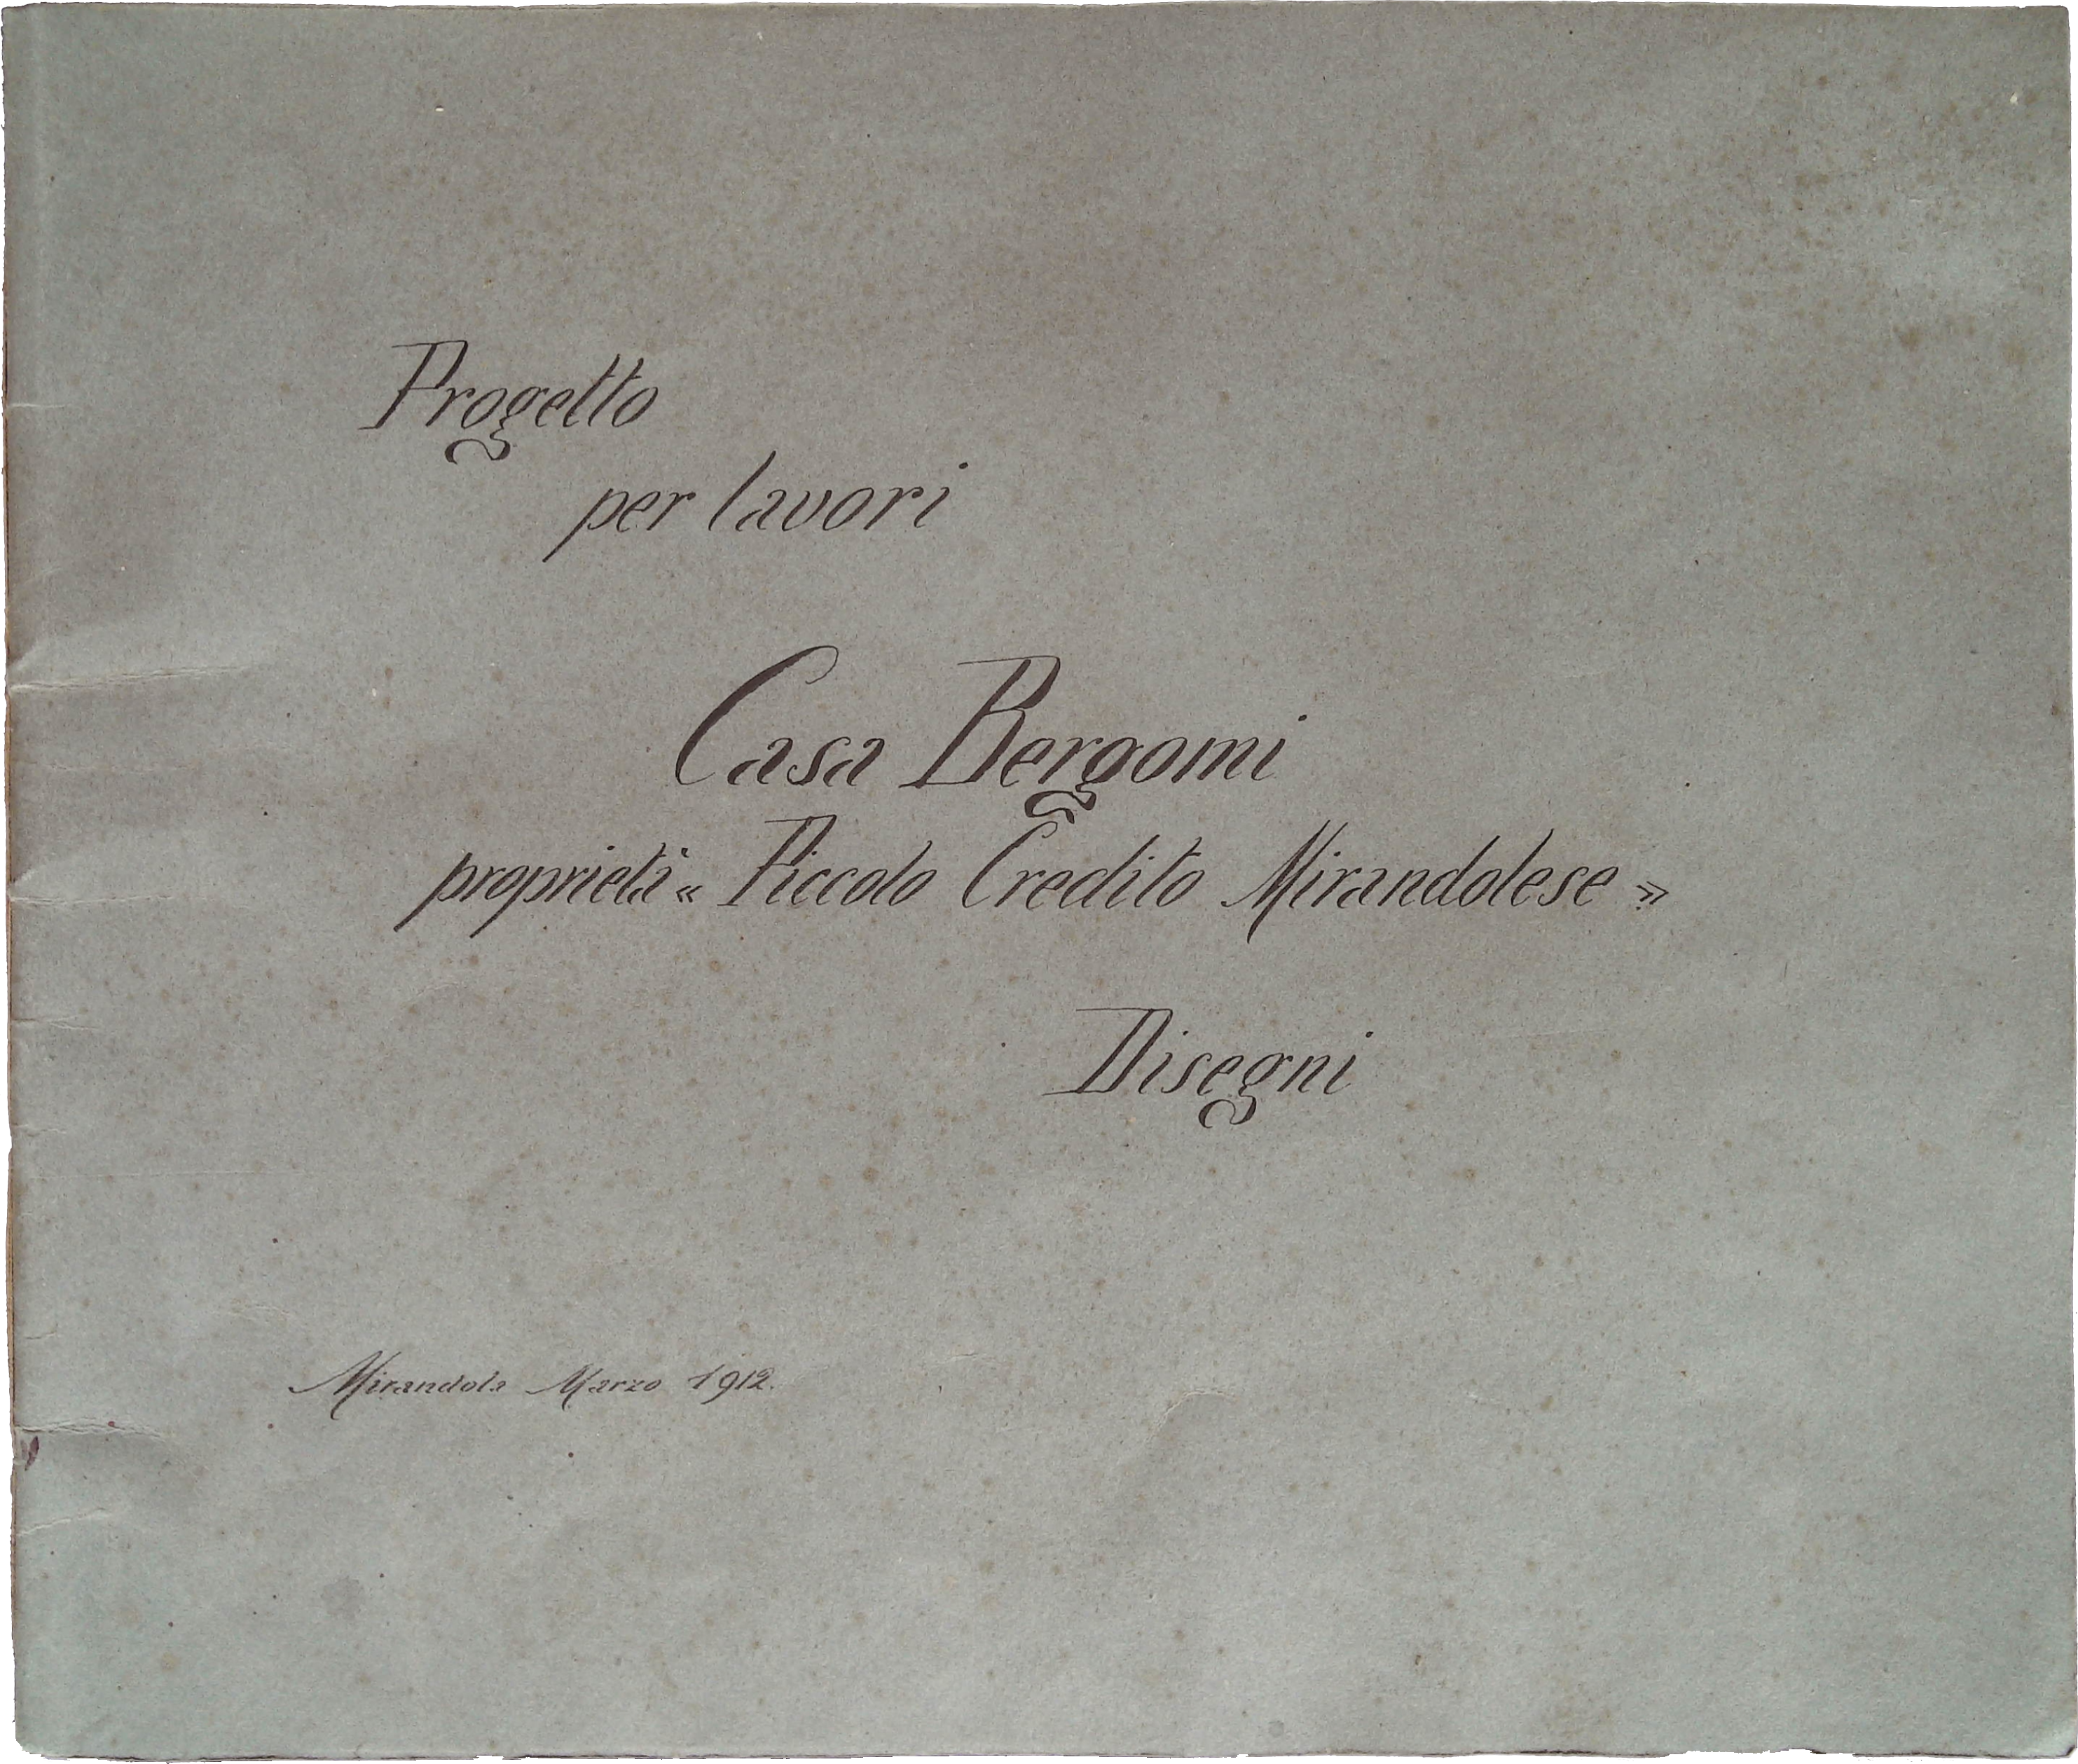 Progetto
per lavori
Casa Bergomi
proprietà « Piccolo Credito Mirandolese »
Disegni
Mirandola Marzo 1912.